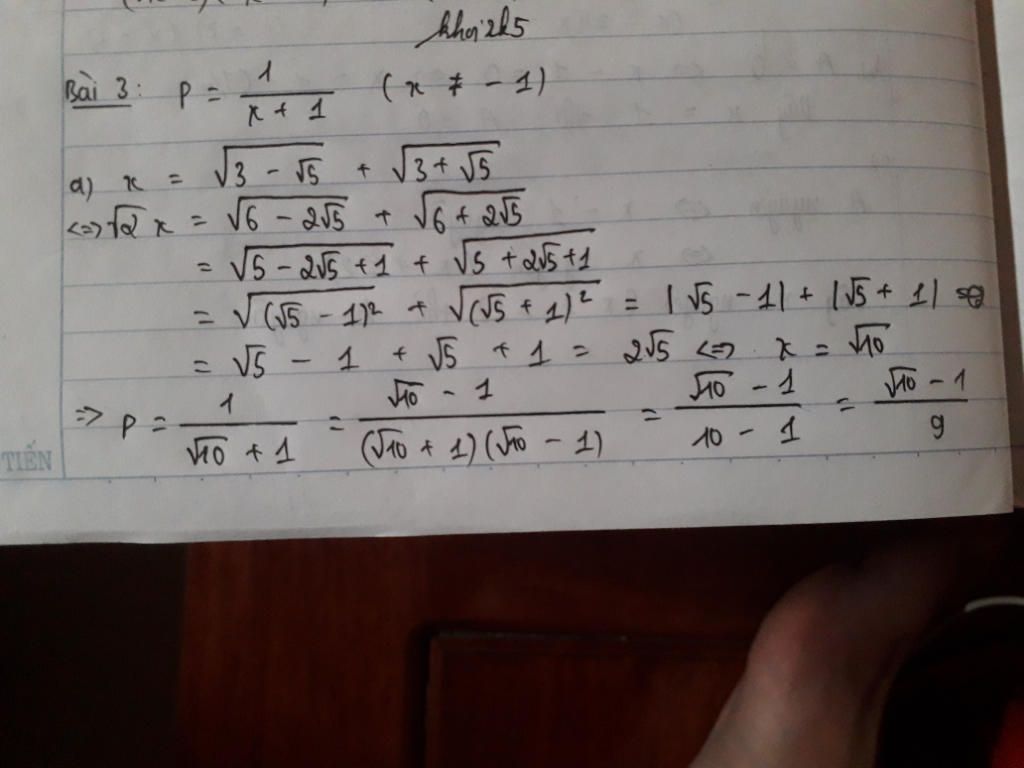 khoi2k5
Bài 3: P = 1/(x + 1) (x ≠ - 1)
a) x = √(3 - √5) + √(3 + √5)
<=> √2 x = √(6 - 2√5) + √(6 + 2√5)
= √(5 - 2√5 + 1) + √(5 + 2√5 + 1)
= √((√5 - 1)²) + √((√5 + 1)²) = |√5 - 1| + |√5 + 1|
= √5 - 1 + √5 + 1 = 2√5 <=> x = √10
=> P = 1/(√10 + 1) = (√10 - 1)/((√10 + 1)(√10 - 1)) = (√10 - 1)/(10 - 1) = (√10 - 1)/9
TIẾN